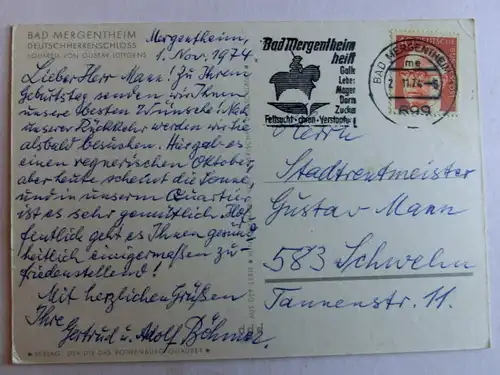 BAD MERGENTHEIM
DEUTSCHHERRENSCHLOSS
AQUARELL VON GUSTAV LÜTTGENS
Mergentheim,
1. Nov. 1974
Lieber Herr Mann! Zu Ihrem
Geburtstag senden wir Ihnen
unsere besten Wünsche! Nach
unserer Rückkehr werden wir Sie
alsbald besuchen. Hier gab es
einen regnerischen Oktober,
aber heute scheint die Sonne,
und in unserem Quartier
ist es sehr gemütlich. Hof-
fentlich geht es Ihnen gesund-
heitlich einigermaßen zu-
friedenstellend!
Mit herzlichen Grüßen
Ihre
Gertrud u. Adolf Böhmer.
VERLAG
ROTHENBURG/TAUBER
Bad Mergentheim
heilt
Galle
Leber
Magen
Darm
Zucker
Fettsucht
Verstopfung
BAD MERGENTHEIM
me
11.74
699
DEUTSCHE BUNDESPOST
Herrn
Stadtrentmeister
Gustav Mann
583 Schwelm
Tannenstr. 11.